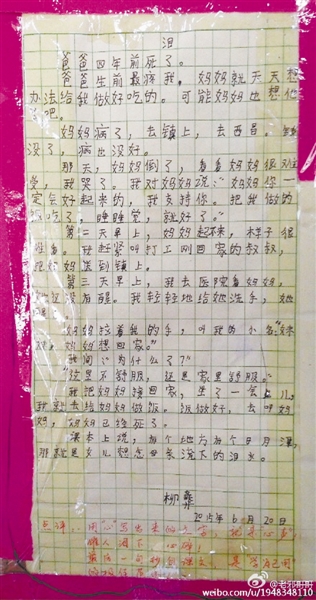 泪
爸爸四年前死了。
爸爸生前最疼我，妈妈就天天想
办法给我做好吃的。可能妈妈也想他
了吧。
妈妈病了，去镇上，去西昌，钱
没了，病也没好。
那天，妈妈倒了，看看妈妈很难
受，我哭了。我对妈妈说：“妈妈你一
定会好起来的，我支持你。把我做的
饭吃了，睡睡觉，就好了。”
第二天早上，妈妈起来，样子很
难看。我赶紧叫打工刚回家的叔叔，
把妈妈送到镇上。
第三天早上，我去医院看妈妈，
她还没有醒。我轻轻地给她洗手，她
妈妈拉着我的手，叫我的小名“妹
妹，妈妈想回家。”
我问：“为什么了？”
“这里不舒服，还是家里舒服。”
我把妈妈接回家，坐了一会儿，
我就去给妈妈做饭。饭做好，去叫妈
妈，妈妈已经死了。
课本上说，有个地方有个日月潭，
那就是女儿想念母亲流下的泪水。
柳彝
2015年6月20日
点评：用“心”写出来的文字
@老邪盼盼
weibo.com/u/1948348110